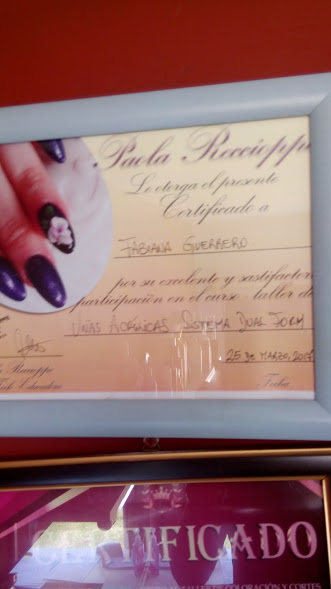 Paola Reccioppo
Le otorga el presente
Certificado a
FABIANA GUERRERO
por su excelente y satisfactoria
participación en el curso - taller de
UÑAS ACRÍLICAS SISTEMA DUAL FORM
25 DE MARZO, 2017
Fecha
CERTIFICADO
TALLER DE COLORACIÓN Y CORTES